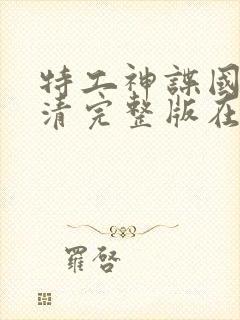 特工神諜國
清完整版在
羅啓